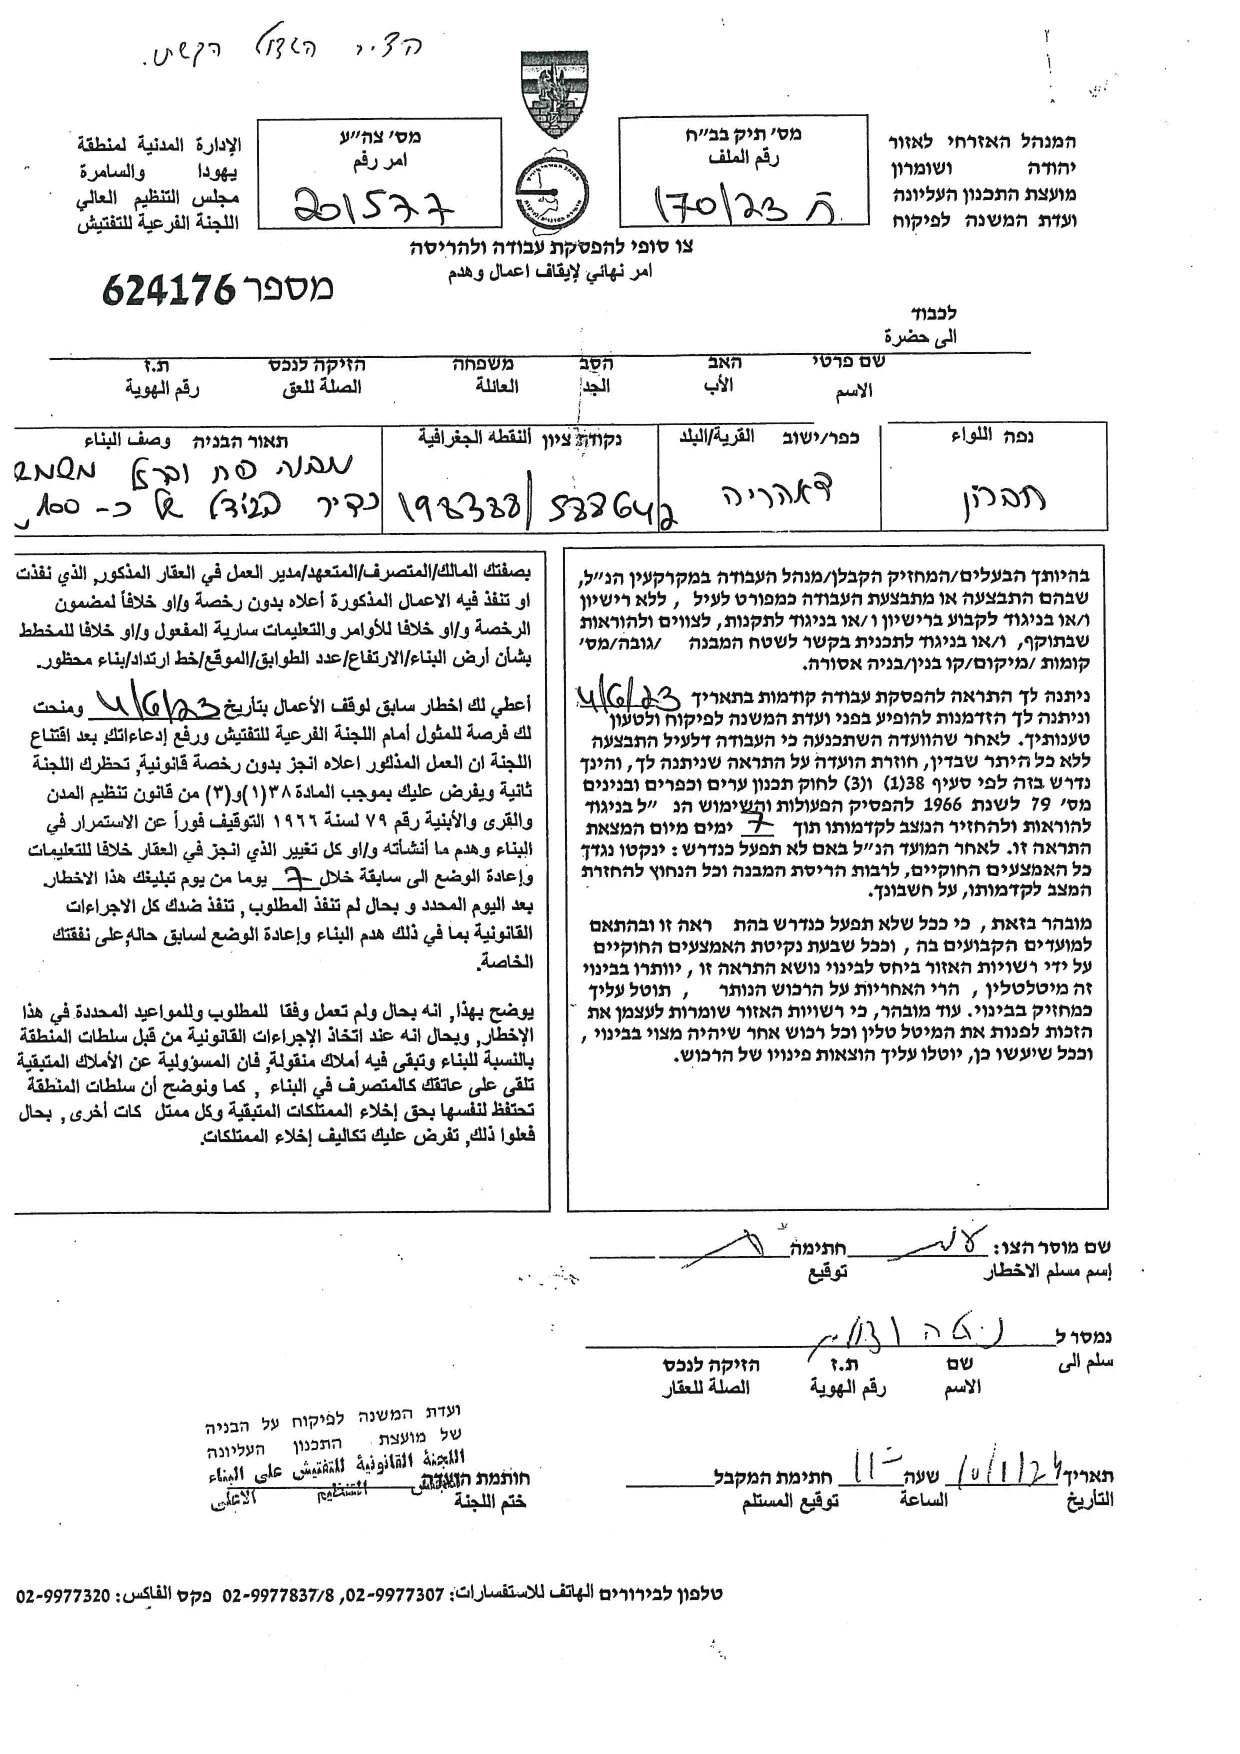 המנהל האזרחי לאזור
יהודה ושומרון
מועצת התכנון העליונה
ועדת המשנה לפיקוח
מס׳ תיק בב״ח
رقم الملف
ח 170/23
מס׳ צה״ע
امر رقم
201577
الإدارة المدنية لمنطقة
يهودا والسامرة
مجلس التنظيم العالي
اللجنة الفرعية للتفتيش
צו סופי להפסקת עבודה ולהריסה
امر نهائي لإيقاف اعمال وهدم
מספר 624176
לכבוד
الى حضرة
שם פרטי האב הסב משפחה הזיקה לנכס ת.ז
الاسم الأب الجد العائلة الصلة للعق رقم الهوية
נפה اللواء
חברון
כפר/ישוב القرية/البلد
דאהריה
נקודת ציון النقطه الجغرافية
198388/588642
תאור הבניה وصف البناء
מבנה פח וברזל
בגודל של כ- 100
בהיותך הבעלים/המחזיק הקבלן/מנהל העבודה במקרקעין הנ״ל,
שבהם התבצעה או מתבצעת העבודה כמפורט לעיל , ללא רישיון
ו/או בניגוד לקבוע ברישיון ו/או בניגוד לתקנות, לצווים ולהוראות
שבתוקף, ו/או בניגוד לתכנית בקשר לשטח המבנה /גובה/מס׳
קומות /מיקום/קו בנין/בניה אסורה.
ניתנה לך התראה להפסקת עבודה קודמות בתאריך 4/6/23
וניתנה לך הזדמנות להופיע בפני ועדת המשנה לפיקוח ולטעון
טענותיך. לאחר שהוועדה השתכנעה כי העבודה דלעיל התבצעה
ללא כל היתר שבדין, חוזרת הועדה על התראה שניתנה לך, והינך
נדרש בזה לפי סעיף 38(1) ו(3) לחוק תכנון ערים וכפרים ובנינים
מס׳ 79 לשנת 1966 להפסיק הפעולות והשימוש הנ ״ל בניגוד
להוראות ולהחזיר המצב לקדמותו תוך 7 ימים מיום המצאת
התראה זו. לאחר המועד הנ״ל באם לא תפעל כנדרש : ינקטו נגדך
כל האמצעים החוקיים, לרבות הריסת המבנה וכל הנחוץ להחזרת
המצב לקדמותו, על חשבונך.
מובהר בזאת , כי ככל שלא תפעל כנדרש בהת ראה זו ובהתאם
למועדים הקבועים בה , וככל שבעת נקיטת האמצעים החוקיים
על ידי רשויות האזור ביחס לבינוי נושא התראה זו , יוותרו בבינוי
זה מיטלטלין , הרי האחריות על הרכוש הנותר , תוטל עליך
כמחזיק בבינוי. עוד מובהר, כי רשויות האזור שומרות לעצמן את
הזכות לפנות את המיטל טלין וכל רכוש אחר שיהיה מצוי בבינוי ,
וככל שיעשו כן, יוטלו עליך הוצאות פינויו של הרכוש.
بصفتك المالك/المتصرف/المتعهد/مدير العمل في العقار المذكور, الذي نفذت
او تنفذ فيه الاعمال المذكورة أعلاه بدون رخصة و/او خلافاً لمضمون
الرخصة و/او خلافا للأوامر والتعليمات سارية المفعول و/او خلافا للمخطط
بشأن أرض البناء/الارتفاع/عدد الطوابق/الموقع/خط ارتداد/بناء محظور.
أعطي لك اخطار سابق لوقف الأعمال بتأريخ 4/6/23 ومنحت
لك فرصة للمثول أمام اللجنة الفرعية للتفتيش ورفع إدعاءاتك. بعد اقتناع
اللجنة ان العمل المذكور اعلاه انجز بدون رخصة قانونية, تحظرك اللجنة
ثانية ويفرض عليك بموجب المادة ٣٨(١)و(٣) من قانون تنظيم المدن
والقرى والأبنية رقم ٧٩ لسنة ١٩٦٦ التوقيف فوراً عن الاستمرار في
البناء وهدم ما أنشأته و/او كل تغيير الذي انجز في العقار خلافا للتعليمات
وإعادة الوضع الى سابقة خلال 7 يوما من يوم تبليغك هذا الاخطار.
بعد اليوم المحدد و بحال لم تنفذ المطلوب , تنفذ ضدك كل الاجراءات
القانونية بما في ذلك هدم البناء وإعادة الوضع لسابق حاله,على نفقتك
الخاصة.
يوضح بهذا, انه بحال ولم تعمل وفقا للمطلوب وللمواعيد المحددة في هذا
الإخطار, وبحال انه عند اتخاذ الإجراءات القانونية من قبل سلطات المنطقة
بالنسبة للبناء وتبقى فيه أملاك منقولة, فان المسؤولية عن الأملاك المتبقية
تلقى على عاتقك كالمتصرف في البناء , كما ونوضح أن سلطات المنطقة
تحتفظ لنفسها بحق إخلاء الممتلكات المتبقية وكل ممتل كات أخرى , بحال
فعلوا ذلك, تفرض عليك تكاليف إخلاء الممتلكات.
שם מוסר הצו: חתימה
إسم مسلم الاخطار توقيع
נמסר ל
سلم الى
שם ת.ז הזיקה לנכס
الاسم رقم الهوية الصلة للعقار
ועדת המשנה לפיקוח על הבניה
של מועצת התכנון העליונה
اللجنة القانونية للتفتيش على البناء
التنظيم الاعلى
תאריך 10/1/24 שעה 11 חתימת המקבל חותמת הועדה
التأريخ الساعة توقيع المستلم ختم اللجنة
טלפון לבירורים الهاتف للاستفسارات: 02-9977307, 02-9977837/8 פקס الفاكس: 02-9977320